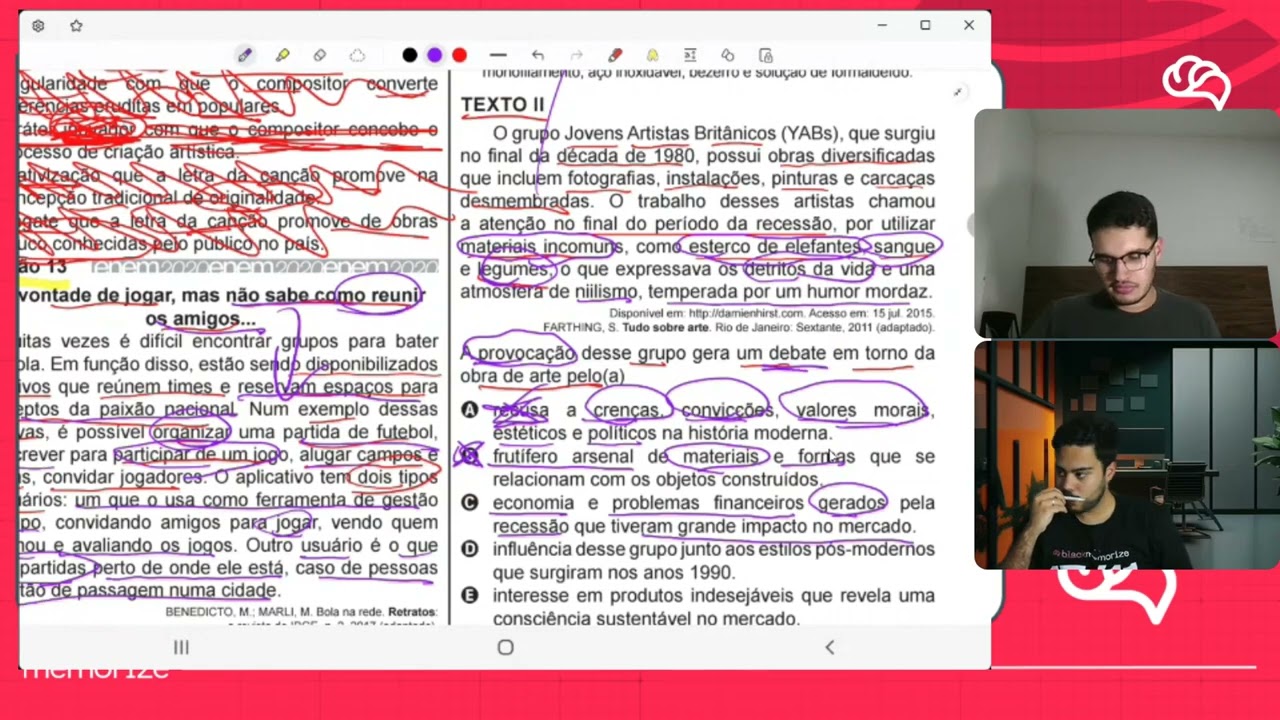 gularidade com que o compositor converte
erências eruditas em populares.
com que o compositor concebe o
ocesso de criação artística.
ativização que a letra da canção promove na
ncepção tradicional de originalidade.
gate que a letra da canção promove de obras
uco conhecidas pelo público no país.
ão 13 enem2020enem2020enem2020
vontade de jogar, mas não sabe como reunir
os amigos...
uitas vezes é difícil encontrar grupos para bater
ola. Em função disso, estão sendo disponibilizados
ivos que reúnem times e reservam espaços para
eptos da paixão nacional. Num exemplo dessas
vas, é possível organizar uma partida de futebol,
crever para participar de um jogo, alugar campos e
s, convidar jogadores. O aplicativo tem dois tipos
ários: um que o usa como ferramenta de gestão
po, convidando amigos para jogar, vendo quem
nou e avaliando os jogos. Outro usuário é o que
partidas perto de onde ele está, caso de pessoas
tão de passagem numa cidade.
BENEDICTO, M.; MARLI, M. Bola na rede. Retratos:
monofilamento, aço inoxidável, bezerro e solução de formaldeído.
TEXTO II
O grupo Jovens Artistas Britânicos (YABs), que surgiu
no final da década de 1980, possui obras diversificadas
que incluem fotografias, instalações, pinturas e carcaças
desmembradas. O trabalho desses artistas chamou
a atenção no final do período da recessão, por utilizar
materiais incomuns, como esterco de elefantes, sangue
e legumes, o que expressava os detritos da vida e uma
atmosfera de niilismo, temperada por um humor mordaz.
Disponível em: http://damienhirst.com. Acesso em: 15 jul. 2015.
FARTHING, S. Tudo sobre arte. Rio de Janeiro: Sextante, 2011 (adaptado).
A provocação desse grupo gera um debate em torno da
obra de arte pelo(a)
A recusa a crenças, convicções, valores morais,
estéticos e políticos na história moderna.
frutífero arsenal de materiais e formas que se
relacionam com os objetos construídos.
C economia e problemas financeiros gerados pela
recessão que tiveram grande impacto no mercado.
D influência desse grupo junto aos estilos pós-modernos
que surgiram nos anos 1990.
E interesse em produtos indesejáveis que revela uma
consciência sustentável no mercado.
memorize